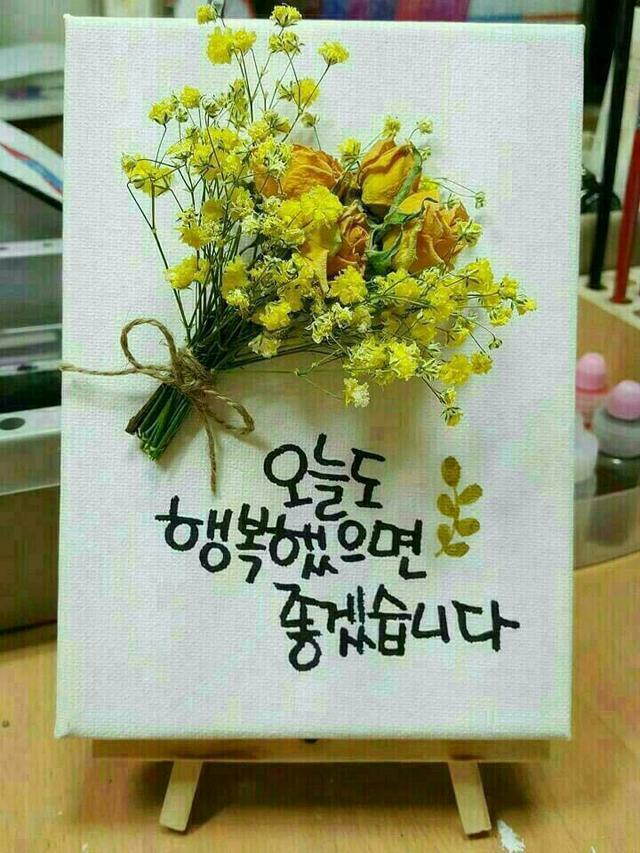 오늘도
행복했으면
좋겠습니다